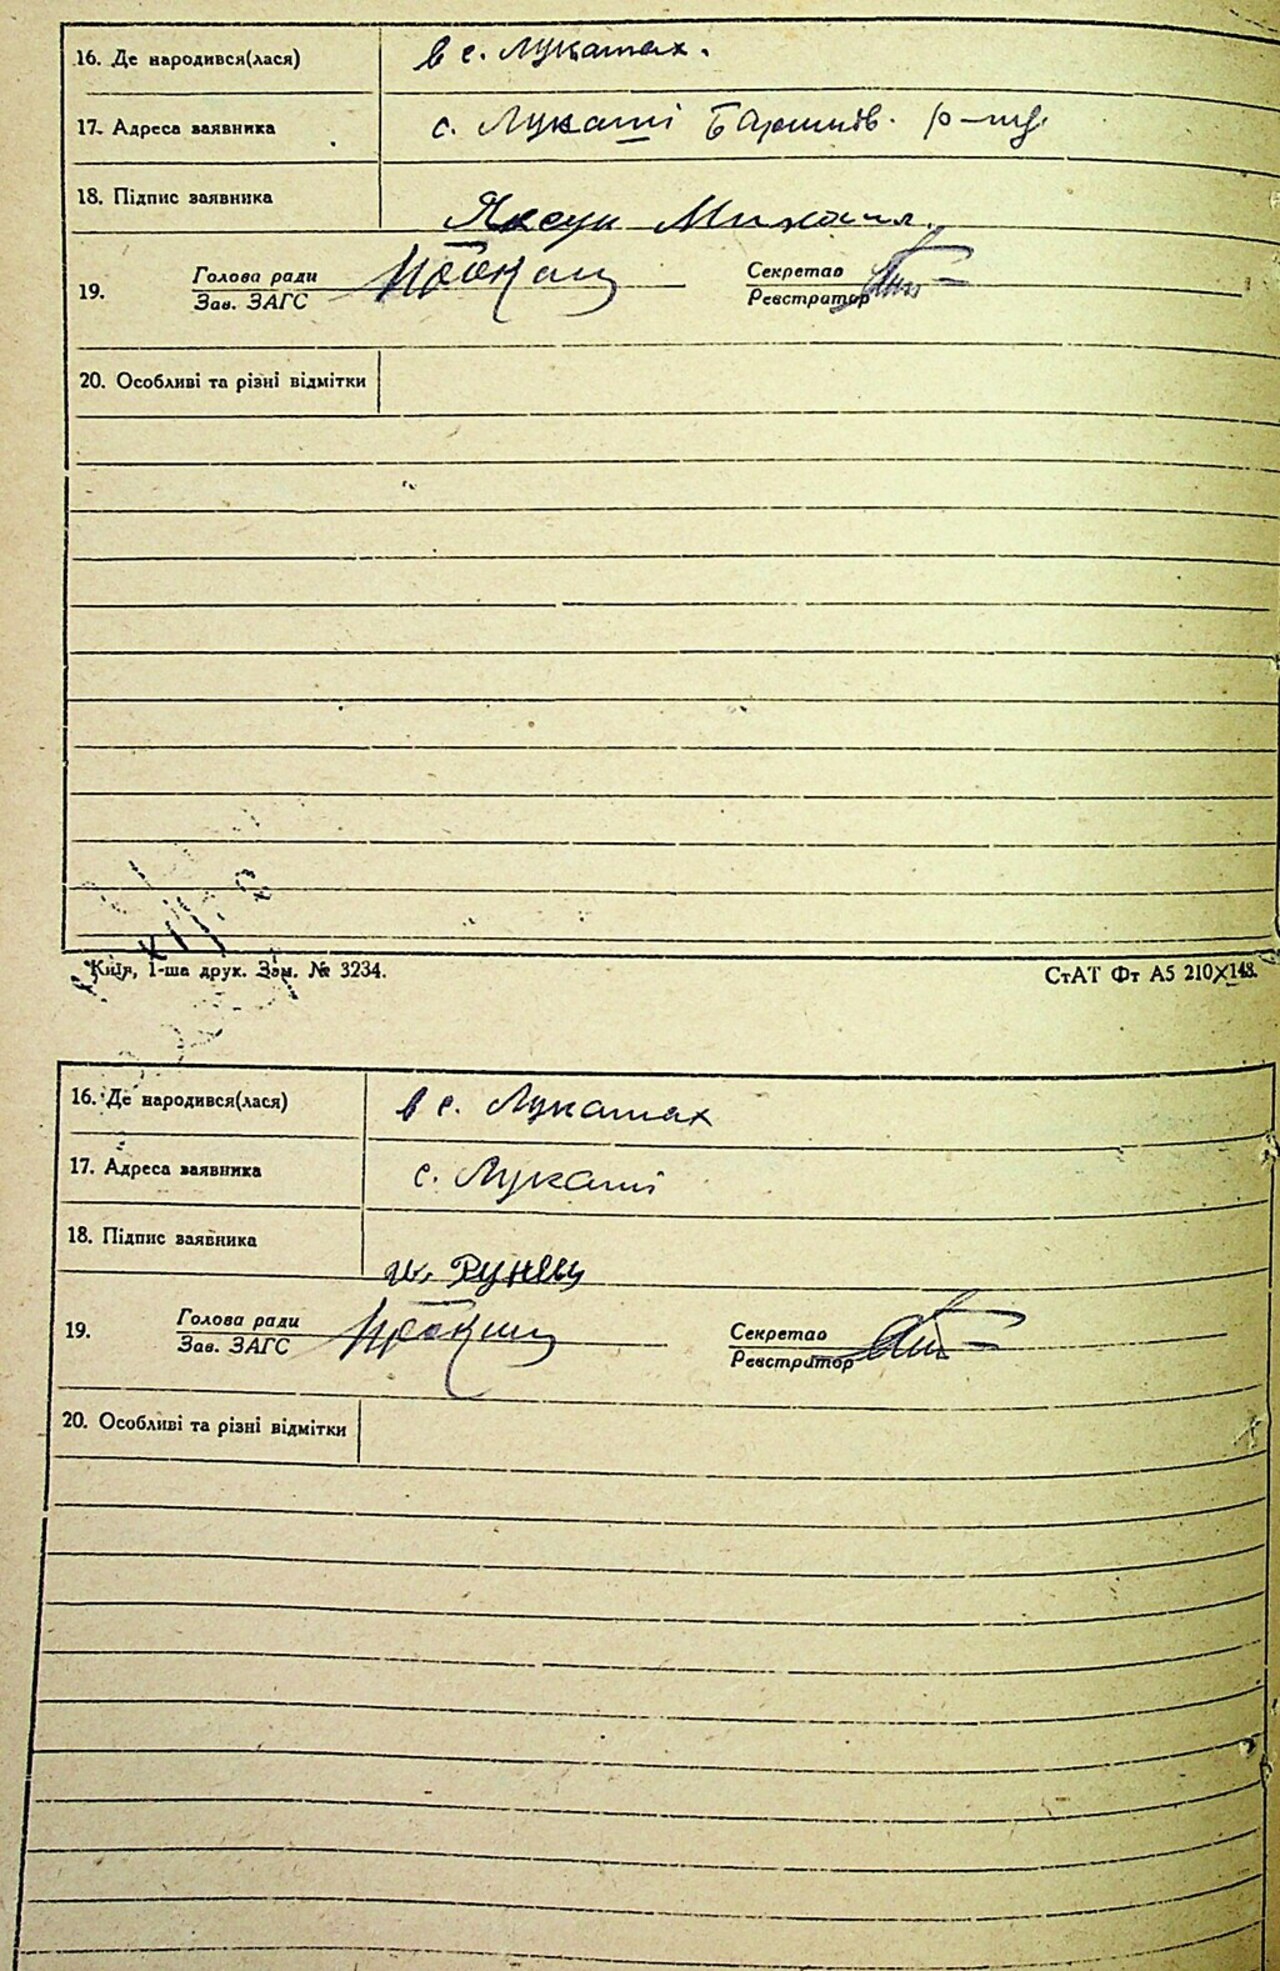 16. Де народився(лася) в с. Лукашах.
17. Адреса заявника с. Лукаші Баришів. р-ну
18. Підпис заявника Михаил
19. Голова ради Секретар
Зав. ЗАГС Реєстратор
20. Особливі та різні відмітки
Київ, 1-ша друк. Зам. № 3234. СтАТ Фт А5 210X148.
16. Де народився(лася) в с. Лукашах
17. Адреса заявника с. Лукаші
18. Підпис заявника
19. Голова ради Секретар
Зав. ЗАГС Реєстратор
20. Особливі та різні відмітки